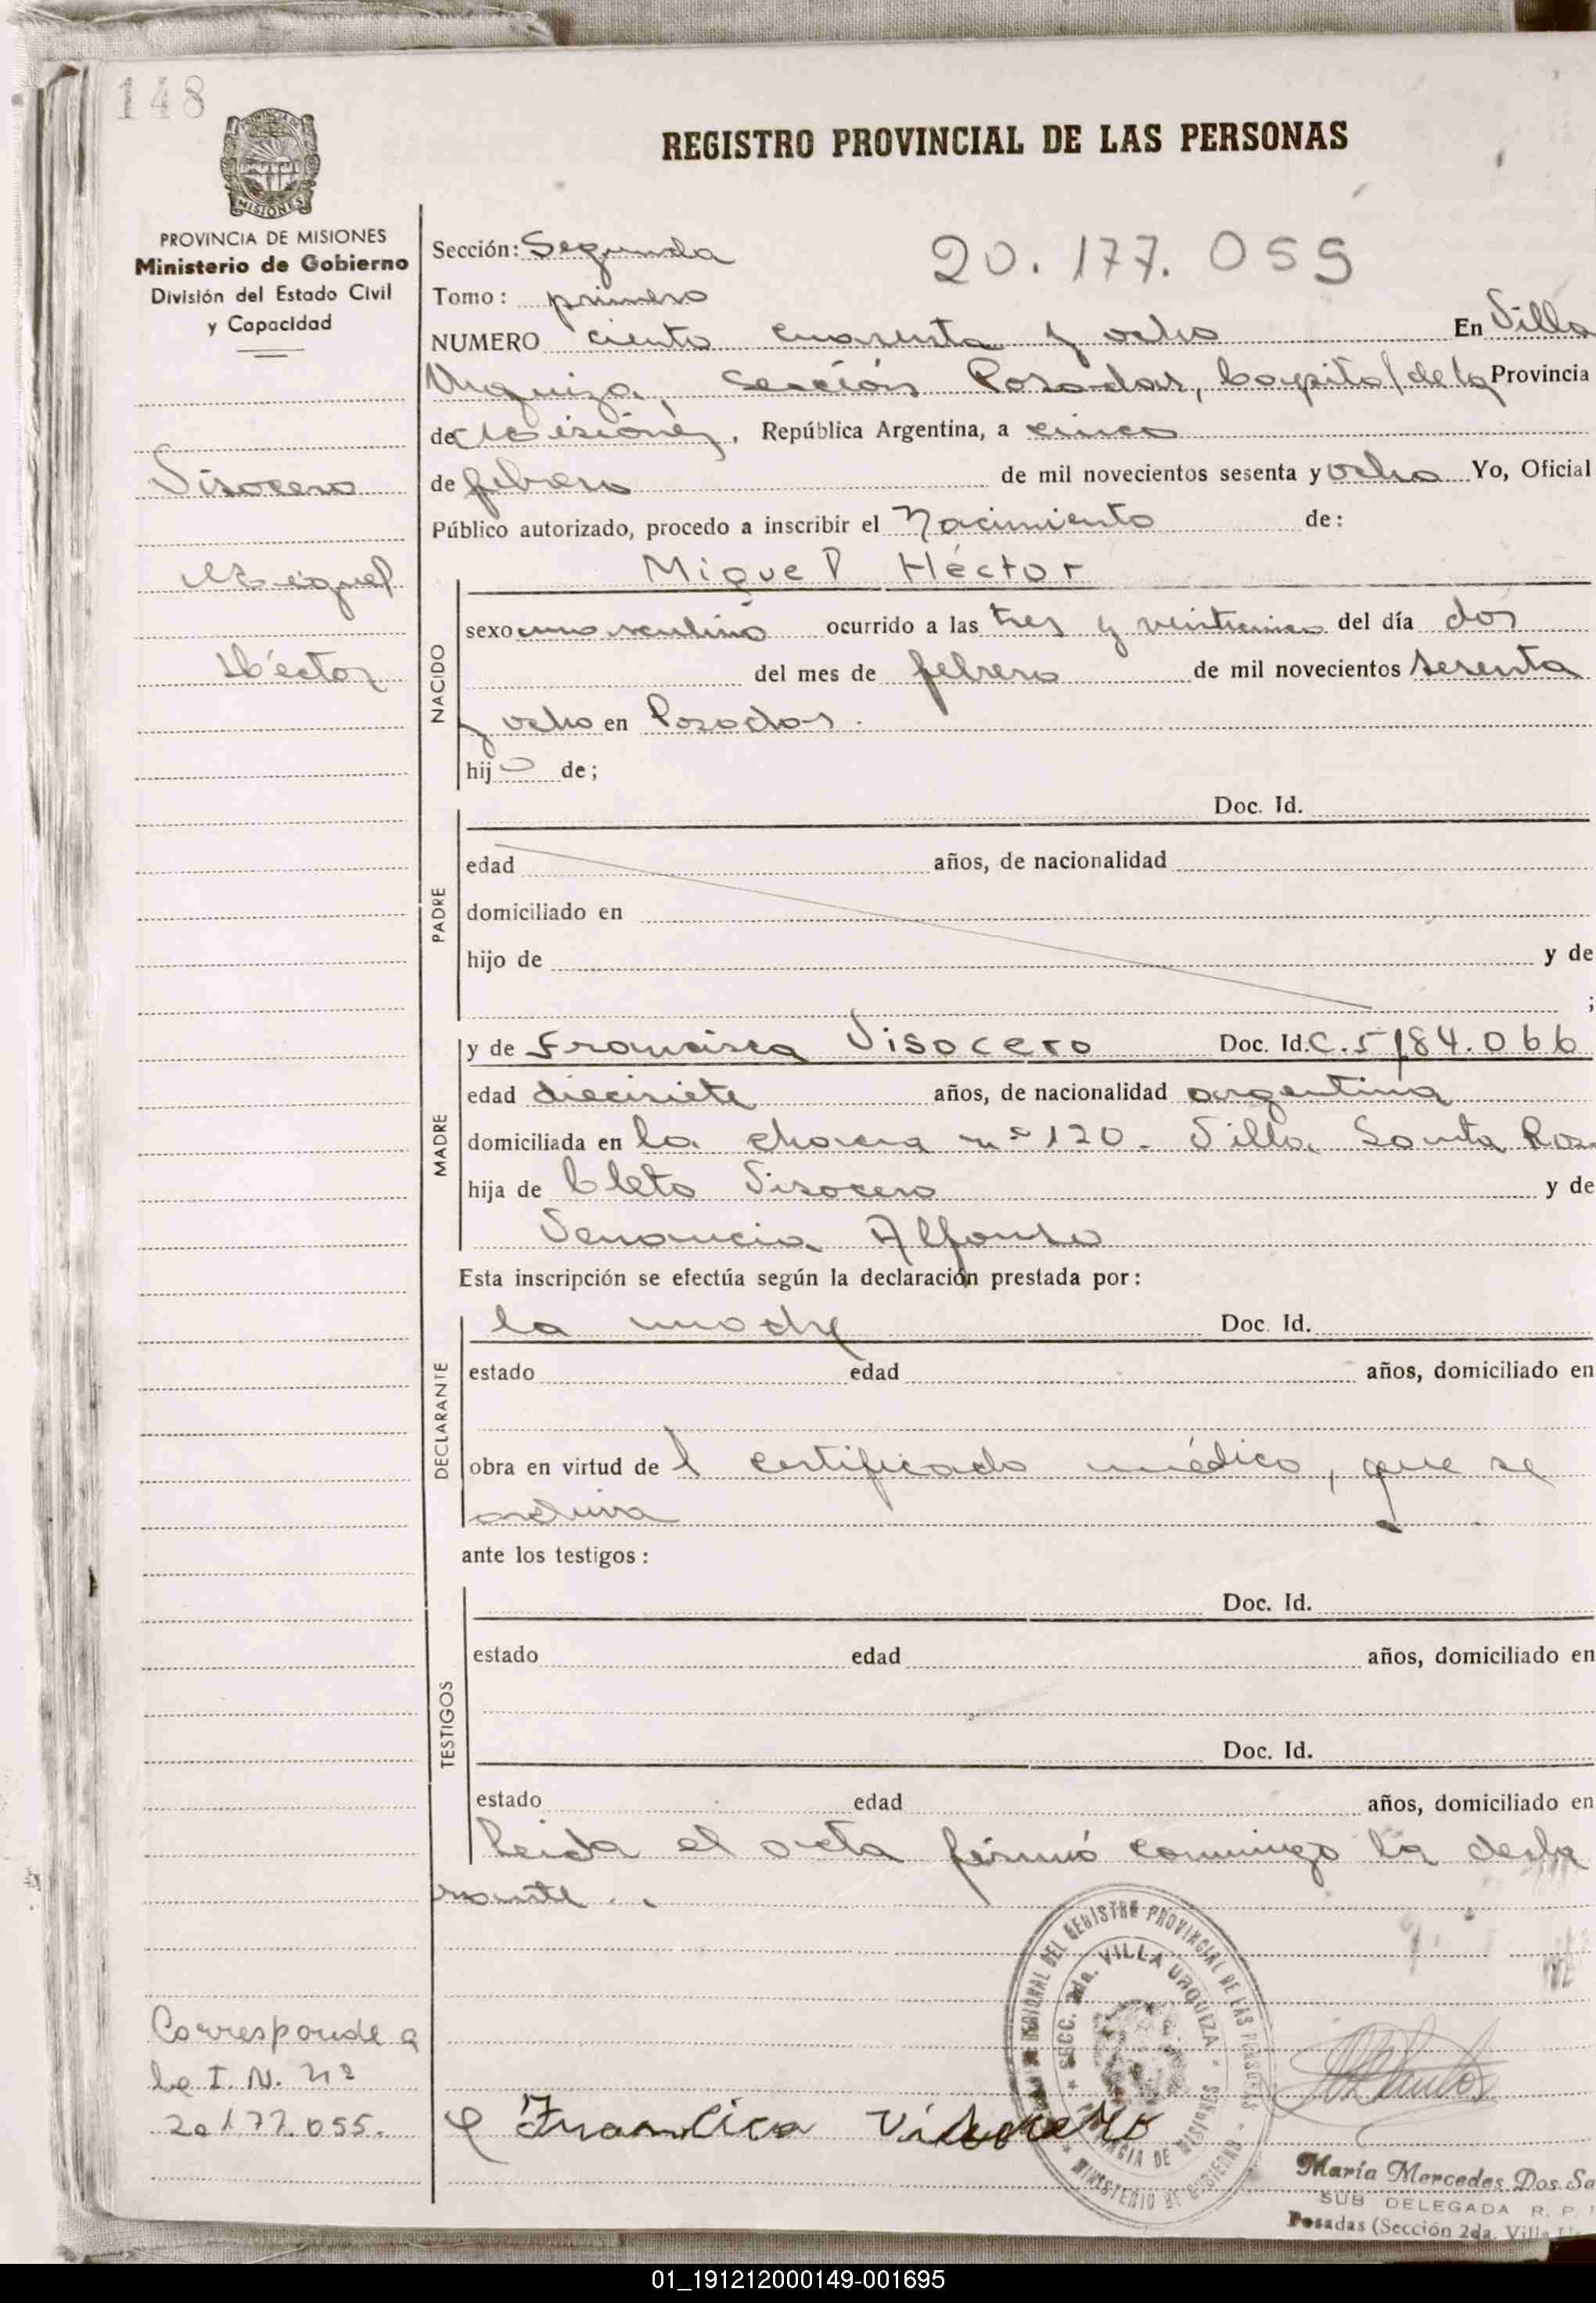 148
PROVINCIA DE
MISIONES
PROVINCIA DE MISIONES
Ministerio de Gobierno
División del Estado Civil
y Capacidad
REGISTRO PROVINCIAL DE LAS PERSONAS
Sección: Segunda
20.177.055
Tomo: primero
NUMERO ciento cuarenta y ocho En Villa
Urquiza, Sección Posadas, Capital de la Provincia
de Misiones, República Argentina, a cinco
de febrero de mil novecientos sesenta y ocho Yo, Oficial
Público autorizado, procedo a inscribir el Nacimiento de:
Visocero
Miguel
Héctor
NACIDO
Miguel Héctor
sexo masculino ocurrido a las tres y veinticinco del día dos
del mes de febrero de mil novecientos sesenta
y ocho en Posadas.
hijo de;
PADRE
Doc. Id.
edad años, de nacionalidad
domiciliado en
hijo de y de
;
MADRE
y de Francisca Visocero Doc. Id. C. 5184.066
edad diecisiete años, de nacionalidad argentina
domiciliada en la chacra nº 120. Villa Santa Rosa
hija de Cleto Visocero y de
Venancia Alfonso
Esta inscripción se efectúa según la declaración prestada por:
DECLARANTE
la madre Doc. Id.
estado edad años, domiciliado en
obra en virtud del certificado médico, que se
archiva
ante los testigos:
TESTIGOS
Doc. Id.
estado edad años, domiciliado en
Doc. Id.
estado edad años, domiciliado en
Leida el acta firmó conmigo la decla
rante..
Corresponde a
la I. N. nº
20177.055.
REGIONAL DEL REGISTRO PROVINCIAL DE LAS PERSONAS
SECC. 2da. VILLA URQUIZA
PROVINCIA DE MISIONES
MINISTERIO DE GOBIERNO
Francisca Visocero
María Mercedes Dos Sa
SUB DELEGADA R. P.
Posadas (Sección 2da. Villa U
01_191212000149-001695